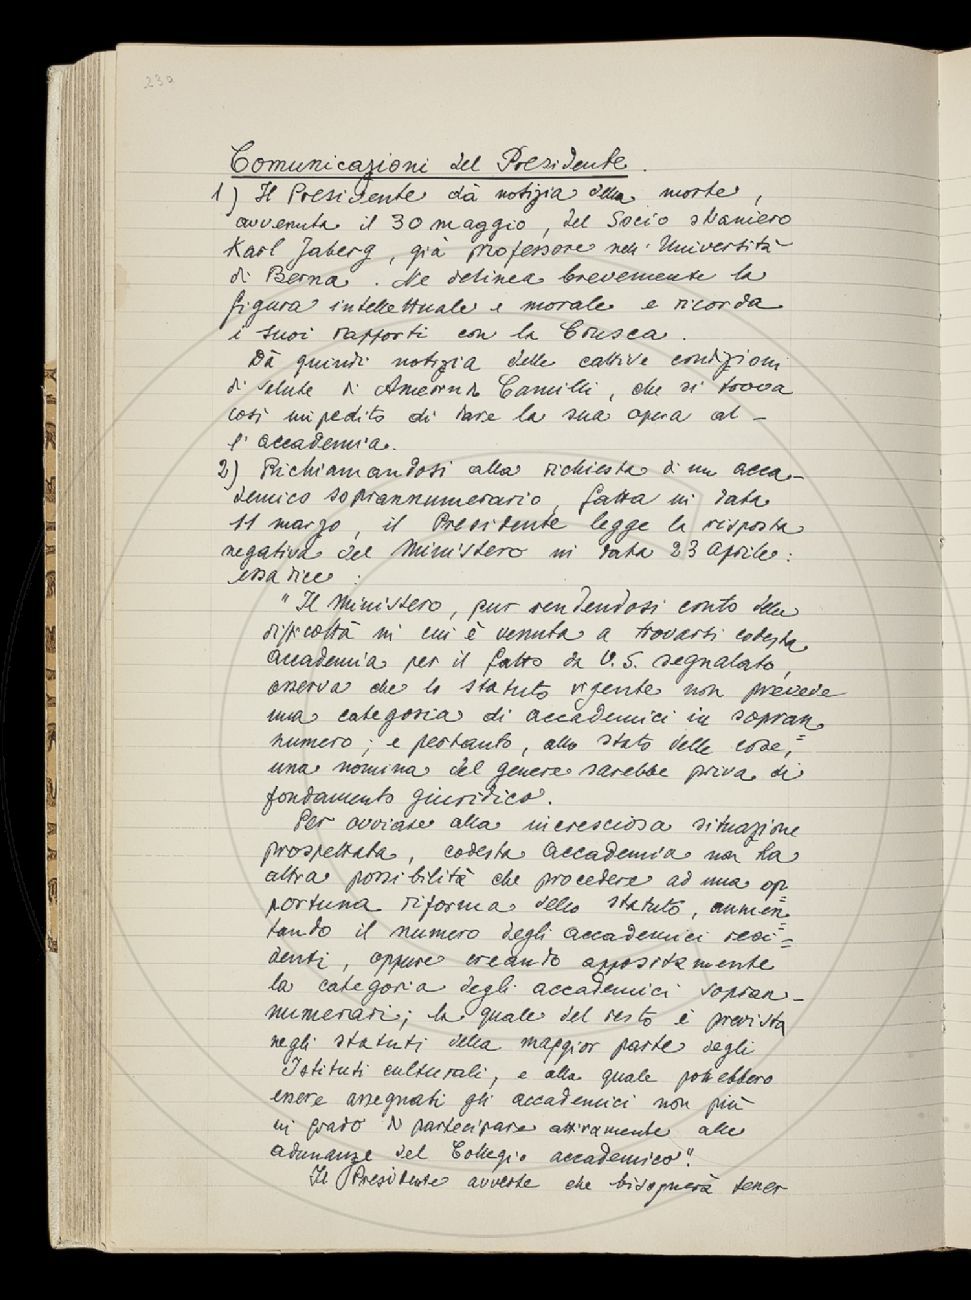 230
Comunicazioni del Presidente.
1) Il Presidente dà notizia della morte,
avvenuta il 30 maggio, del Socio straniero
Karl Jaberg, già professore nell'Università
di Berna. Ne delinea brevemente la
figura intellettuale e morale e ricorda
i suoi rapporti con la Crusca.
Dà quindi notizia delle cattive condizioni
di salute di Amerindo Camilli, che si trova
così impedito di dare la sua opera al-
l'accademia.
2) Richiamandosi alla richiesta di un acca-
demico soprannumerario, fatta in data
11 marzo, il Presidente legge la risposta
negativa del Ministero in data 23 Aprile:
essa dice:
"Il Ministero, pur rendendosi conto delle
difficoltà in cui è venuta a trovarsi codesta
Accademia per il fatto da V.S. segnalato,
osserva che lo statuto vigente non prevede
una categoria di accademici in sopran=
numero; e pertanto, allo stato delle cose,
una nomina del genere sarebbe priva di
fondamento giuridico.
Per ovviare alla incresciosa situazione
prospettata, codesta Accademia non ha
altra possibilità che procedere ad una op=
portuna riforma dello statuto, aumen=
tando il numero degli accademici resi=
denti, oppure creando appositamente
la categoria degli accademici sopran-
numerari; la quale del resto è prevista
negli statuti della maggior parte degli
Istituti culturali, e alla quale potrebbero
essere assegnati gli accademici non più
in grado di partecipare attivamente alle
adunanze del Collegio accademico".
Il Presidente avverte che bisognerà tener